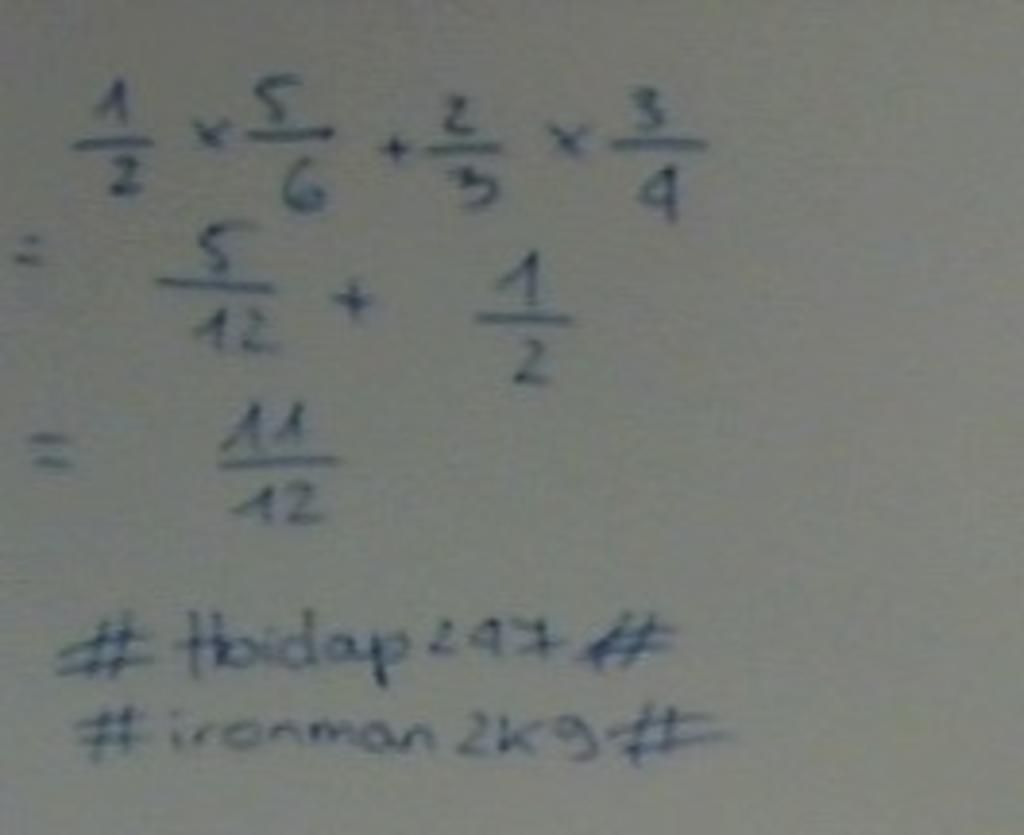 1/2 × 5/6 + 2/3 × 3/4
= 5/12 + 1/2
= 11/12
# Hoidap247 #
# ironman2k9 #